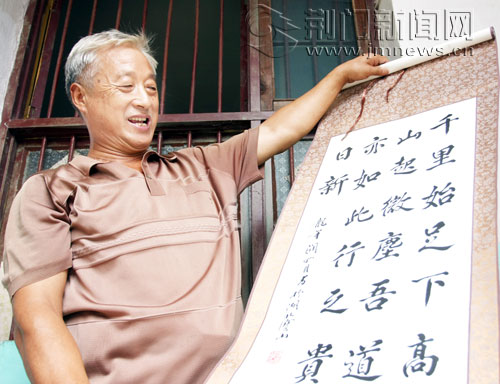 荆门新闻网
www.jmnews.cn
千里始足下高
山起微塵吾道
亦如此行之貴
日新